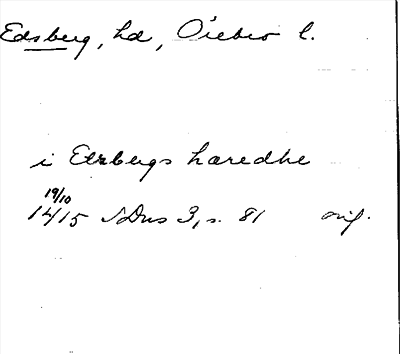 Edsberg, hd, Örebro l.
i Etzbergs hæredhe
19/10
1415 SDns 3, s. 81 orig.